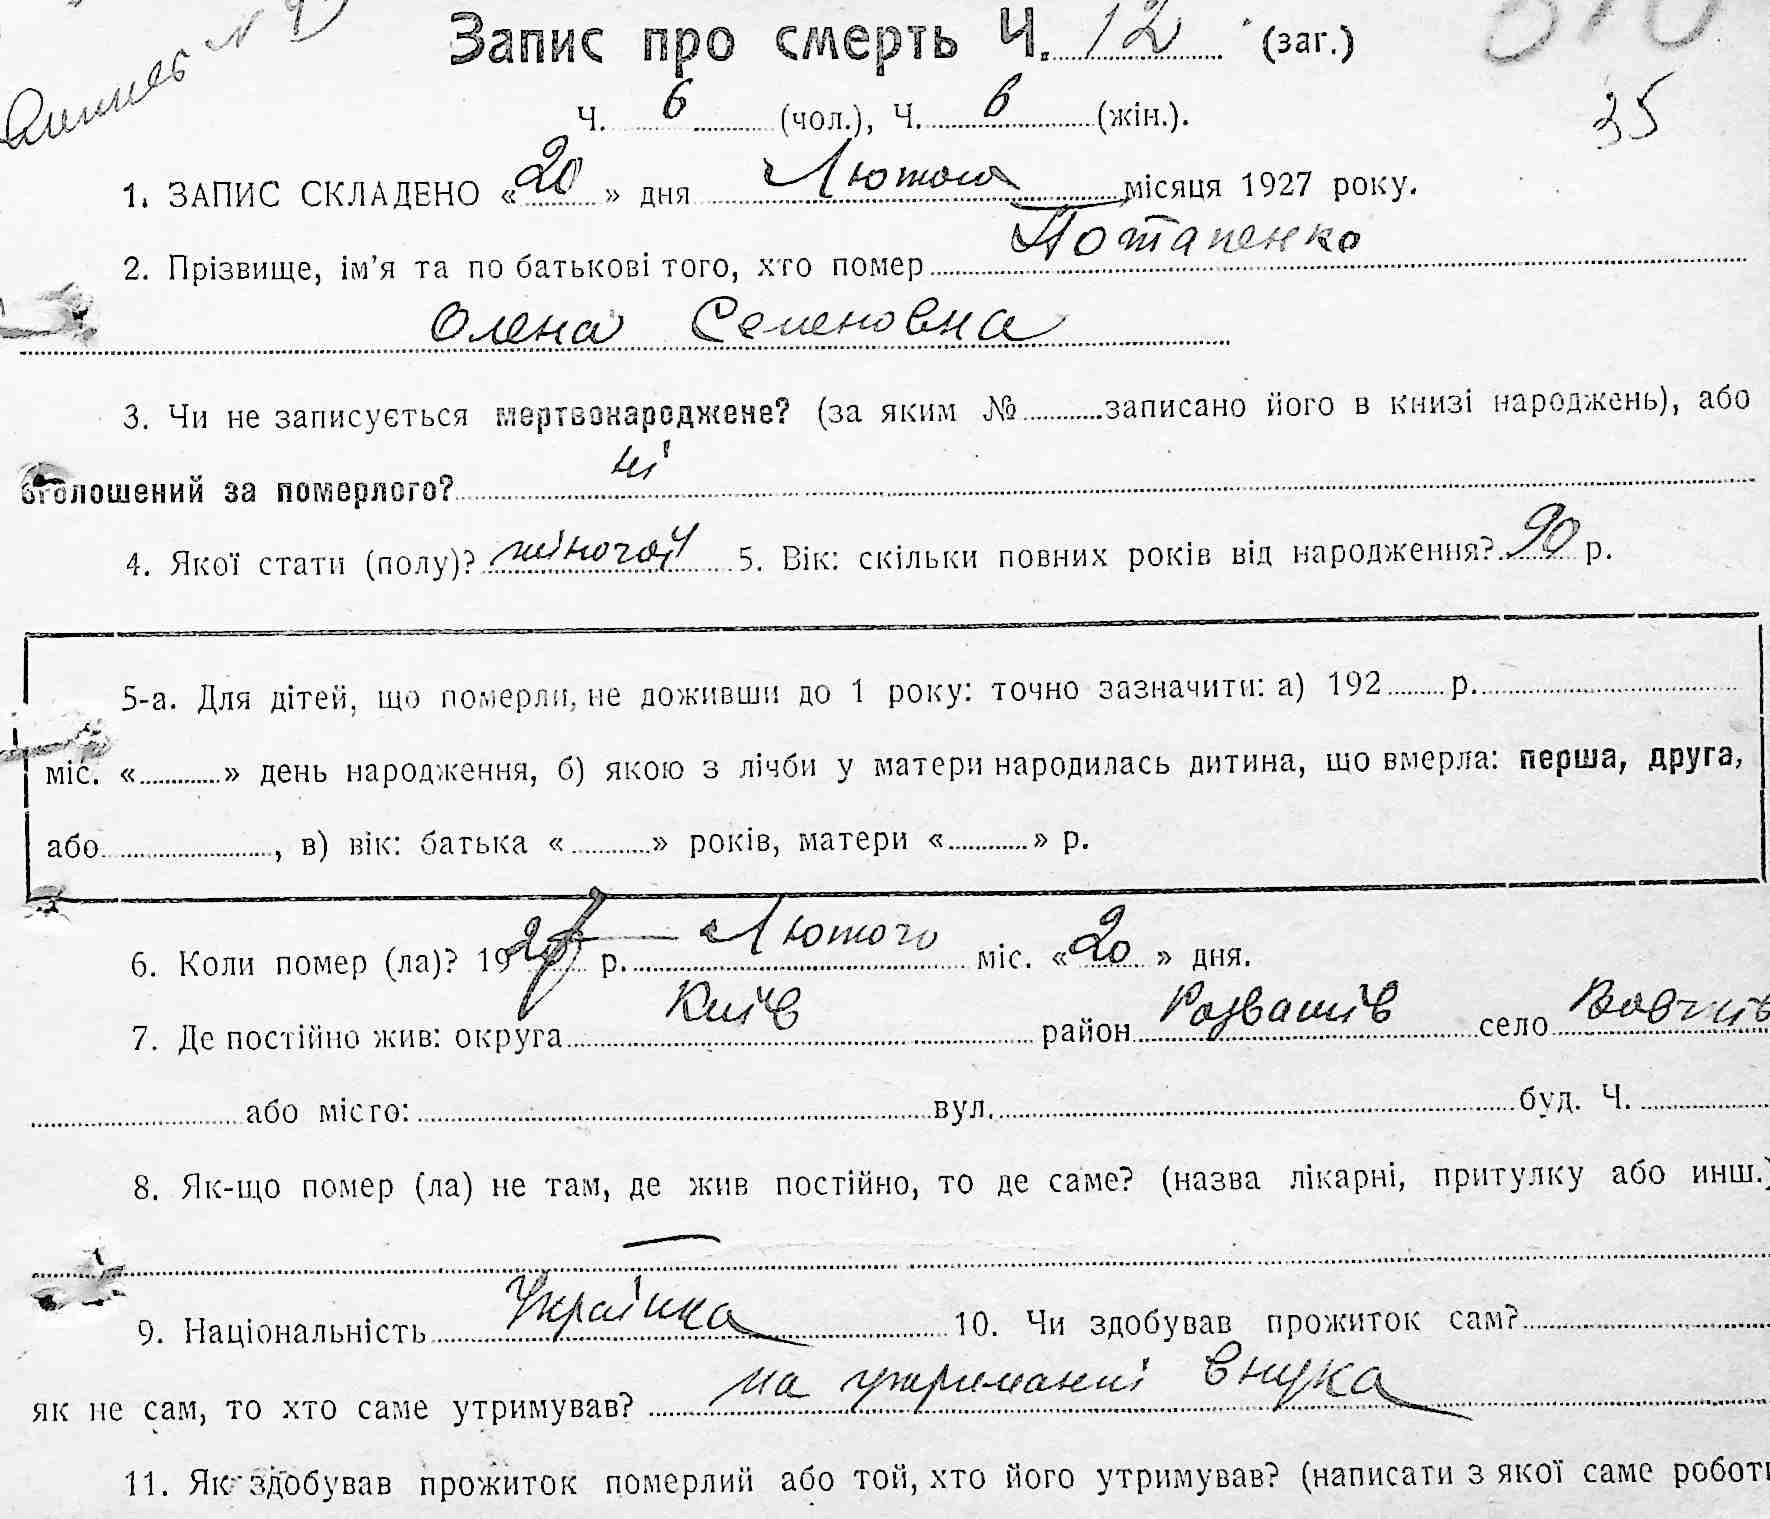 Запис про смерть Ч. 12 (заг.)
Ч. 6 (чол.), Ч. 6 (жін.).
35
1. ЗАПИС СКЛАДЕНО «20» дня Лютого місяця 1927 року.
2. Прізвище, ім'я та по батькові того, хто помер Потапенко
Олена Семеновна
3. Чи не записується мертвонароджене? (за яким № записано його в книзі народжень), або
оголошений за померлого? ні
4. Якої стати (полу)? жіночої 5. Вік: скільки повних років від народження? 90 р.
5-а. Для дітей, що померли, не доживши до 1 року: точно зазначити: а) 192 р.
міс. « » день народження, б) якою з лічби у матери народилась дитина, що вмерла: перша, друга,
або , в) вік: батька « » років, матери « » р.
6. Коли помер (ла)? 1927 р. Лютого міс. «20» дня.
7. Де постійно жив: округа Київ район Розважів село Вовчків
або місто: вул. буд. Ч.
8. Як-що помер (ла) не там, де жив постійно, то де саме? (назва лікарні, притулку або инш.)
—
9. Національність Українка 10. Чи здобував прожиток сам?
як не сам, то хто саме утримував? на утриманні внука
11. Як здобував прожиток померлий або той, хто його утримував? (написати з якої саме роботи